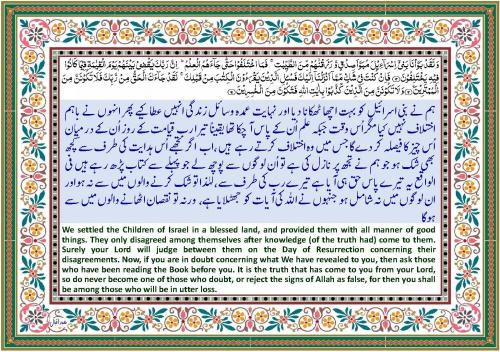 وَلَقَدْ بَوَّأْنَا بَنِيْٓ اِسْرَآءِيْلَ مُبَوَّاَ صِدْقٍ وَّرَزَقْنٰهُمْ مِّنَ الطَّيِّبٰتِ ۚ فَمَا اخْتَلَفُوْا حَتّٰى جَآءَهُمُ الْعِلْمُ ۭ اِنَّ رَبَّكَ يَقْضِيْ بَيْنَهُمْ يَوْمَ الْقِيٰمَةِ فِيْمَا كَانُوْا
فِيْهِ يَخْتَلِفُوْنَ ۝ فَاِنْ كُنْتَ فِيْ شَكٍّ مِّمَّآ اَنْزَلْنَآ اِلَيْكَ فَسْـَٔلِ الَّذِيْنَ يَقْرَءُوْنَ الْكِتٰبَ مِنْ قَبْلِكَ ۚ لَقَدْ جَآءَكَ الْحَقُّ مِنْ رَّبِّكَ فَلَا تَكُوْنَنَّ مِنَ
الْمُمْتَرِيْنَ ۝ وَلَا تَكُوْنَنَّ مِنَ الَّذِيْنَ كَذَّبُوْا بِاٰيٰتِ اللّٰهِ فَتَكُوْنَ مِنَ الْخٰسِرِيْنَ ۝
ہم نے بنی اسرائیل کو بہت اچھا ٹھکانا دیا اور نہایت عمدہ وسائل زندگی انہیں عطا کیے پھر انہوں نے باہم
اختلاف نہیں کیا مگر اُس وقت جبکہ علم اُن کے پاس آ چکا تھا یقیناً تیرا رب قیامت کے روز اُن کے درمیان
اُس چیز کا فیصلہ کر دے گا جس میں وہ اختلاف کرتے رہے ہیں، اب اگر تجھے اُس ہدایت کی طرف سے کچھ
بھی شک ہو جو ہم نے تجھ پر نازل کی ہے تو اُن لوگوں سے پوچھ لے جو پہلے سے کتاب پڑھ رہے ہیں فی
الواقع یہ تیرے پاس حق ہی آیا ہے تیرے رب کی طرف سے، لہٰذا تو شک کرنے والوں میں سے نہ ہو اور
ان لوگوں میں نہ شامل ہو جنہوں نے اللہ کی آیات کو جھٹلایا ہے، ورنہ تو نقصان اٹھانے والوں میں سے
ہوگا
We settled the Children of Israel in a blessed land, and provided them with all manner of good
things. They only disagreed among themselves after knowledge (of the truth had) come to them.
Surely your Lord will judge between them on the Day of Resurrection concerning their
disagreements. Now, if you are in doubt concerning what We have revealed to you, then ask those
who have been reading the Book before you. It is the truth that has come to you from your Lord,
so do never become one of those who doubt, or reject the signs of Allah as false, for then you shall
be among those who will be in utter loss.